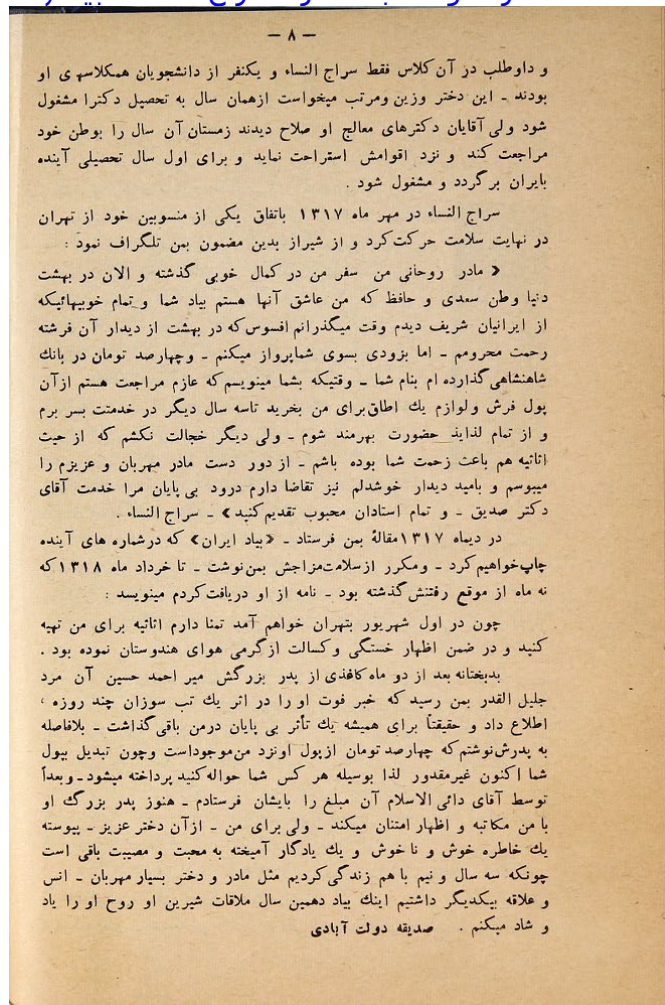 — ۸ —
و داوطلب در آن کلاس فقط سراج النساء و یکنفر از دانشجویان همکلاسهی او
بودند ـ این دختر وزین ومرتب میخواست ازهمان سال به تحصیل دکترا مشغول
شود ولی آقایان دکترهای معالج او صلاح دیدند زمستان آن سال را بوطن خود
مراجعت کند و نزد اقوامش استراحت نماید و برای اول سال تحصیلی آینده
بایران برگردد و مشغول شود .
سراج النساء در مهر ماه ۱۳۱۷ باتفاق یکی از منسوبین خود از تهران
در نهایت سلامت حرکت کرد و از شیراز بدین مضمون بمن تلگراف نمود :
« مادر روحانی من سفر من در کمال خوبی گذشته و الان در بهشت
دنیا وطن سعدی و حافظ که من عاشق آنها هستم بیاد شما و تمام خوبیهائیکه
از ایرانیان شریف دیدم وقت میگذرانم افسوس که در بهشت از دیدار آن فرشته
رحمت محرومم ـ اما بزودی بسوی شماپرواز میکنم ـ وچهارصد تومان در بانك
شاهنشاهی گذارده ام بنام شما ـ وقتیکه بشما مینویسم که عازم مراجعت هستم ازآن
پول فرش ولوازم یك اطاق برای من بخرید تاسه سال دیگر در خدمتت بسر برم
و از تمام لذاید حضورت بهرمند شوم ـ ولی دیگر خجالت نکشم که از حیث
اثاثیه هم باعث زحمت شما بوده باشم ـ از دور دست مادر مهربان و عزیزم را
میبوسم و بامید دیدار خوشدلم نیز تقاضا دارم درود بی پایان مرا خدمت آقای
دکتر صدیق ـ و تمام استادان محبوب تقدیم کنید» ـ سراج النساء .
در دیماه ۱۳۱۷ مقالهٔ بمن فرستاد ـ «بیاد ایران» که درشماره های آینده
چاپ خواهیم کرد ـ ومکرر از سلامت مزاجش بمن نوشت ـ تا خرداد ماه ۱۳۱۸ که
نه ماه از موقع رفتنش گذشته بود ـ نامه از او دریافت کردم مینویسد :
چون در اول شهریور بتهران خواهم آمد تمنا دارم اثاثیه برای من تهیه
کنید و در ضمن اظهار خستگی وکسالت ازگرمی هوای هندوستان نموده بود .
بدبختانه بعد از دو ماه کاغذی از پدر بزرگش میر احمد حسین آن مرد
جلیل القدر بمن رسید که خبر فوت او را در اثر یك تب سوزان چند روزه ،
اطلاع داد و حقیقتاً برای همیشه یك تأثر بی پایان درمن باقی گذاشت ـ بلافاصله
به پدرش نوشتم که چهارصد تومان ازپول اونزد من موجوداست وچون تبدیل بپول
شما اکنون غیرمقدور لذا بوسیله هر کس شما حواله کنید پرداخته میشود ـ وبعداً
توسط آقای داعی الاسلام آن مبلغ را بایشان فرستادم ـ هنوز پدر بزرگ او
با من مکاتبه و اظهار امتنان میکند ـ ولی برای من ـ ازآن دختر عزیز ـ پیوسته
یك خاطره خوش و نا خوش و یك یادگار آمیخته به محبت و مصیبت باقی است
چونکه سه سال و نیم با هم زندگی کردیم مثل مادر و دختر بسیار مهربان ـ انس
و علاقه بیکدیگر داشتیم اینك بیاد دهمین سال ملاقات شیرین او روح او را یاد
و شاد میکنم . صدیقه دولت آبادی